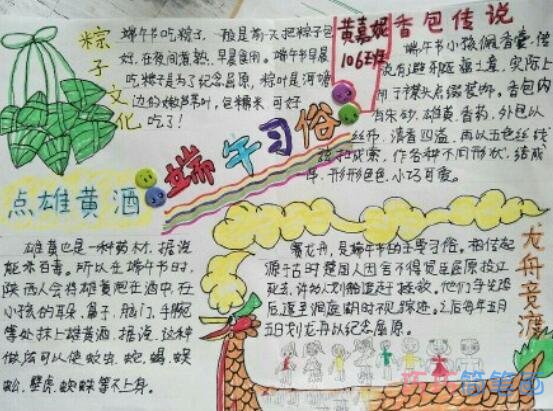 粽子文化
端午节吃粽子,一般是前一天把粽子包
好,在夜间煮熟,早晨食用。端午节早晨
吃粽子是为了纪念屈原,粽叶是河塘
边的嫩芦苇叶,包糯米,可好
吃了!
黄嘉妮
106班
香包传说
端午节小孩佩香囊,传
说有避邪驱瘟之意,实际上
用于襟头点缀装饰。香包内
有朱砂、雄黄、香药,外包以
丝布,清香四溢,再以五色丝线
弦扣成索,作各种不同形状,结成一
串,形形色色,小巧可爱。
端午习俗
点雄黄酒
雄黄也是一种药材,据说
能杀百毒。所以在端午节时,
陕西人会将雄黄泡在酒中,在
小孩的耳朵、鼻子、脑门、手腕
等处抹上雄黄酒,据说,这种
做法可以使蚊虫、蛇、蝎、蜈
蚣、壁虎、蜘蛛等不上身。
龙舟竞渡
赛龙舟,是端午节的主要习俗。相传起
源于古时楚国人因舍不得贤臣屈原投江
死去,许多人划船追赶拯救。他们争先恐
后,追至洞庭湖时不见踪迹。之后每年五月
五日划龙舟以纪念屈原。